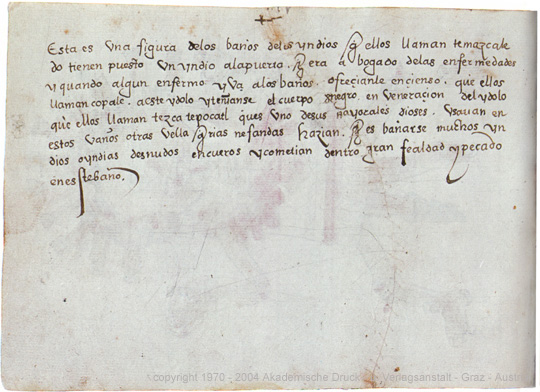 Esta es una figura delos baños delos yndios q̃ ellos llaman temazcale
do tienen puesto un yndio ala puerta. q̃ era abogado delas enfermedades
y quando algun enfermo yva alos baños. ofreçianle encienso. que ellos
llaman copale. a este ydolo y teñianse el cuerpo de negro. en veneracion del ydolo
que ellos llaman tezcatepocatl ques uno de sus mayorales dioses. usavan en
estos vaños otras vella q̃rias nefandas hazian. q̃ es bañarse muchos yn
dios o yndias desnudos en cueros y cometian dentro gran fealdad y pecado
en este baño.
copyright 1970 - 2004 Akademische Druck- Verlagsanstalt - Graz - Austri